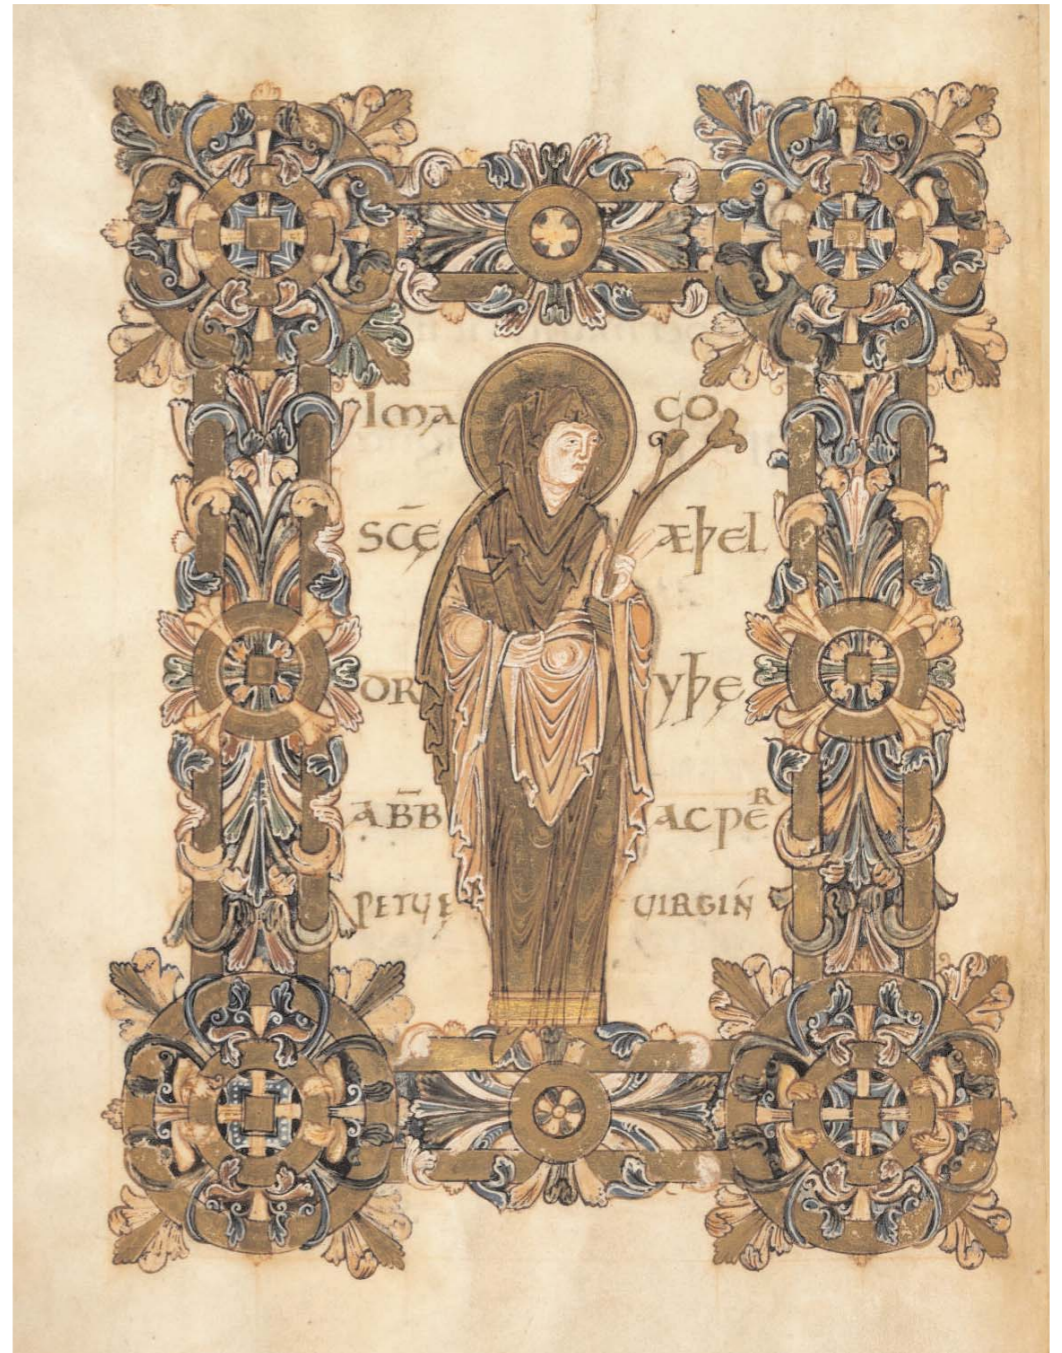 IMA GO
SC̄Ę ÆÞEL
DR YÞĘ
ABB̄ AC PER
PETUĘ UIRGIŃ